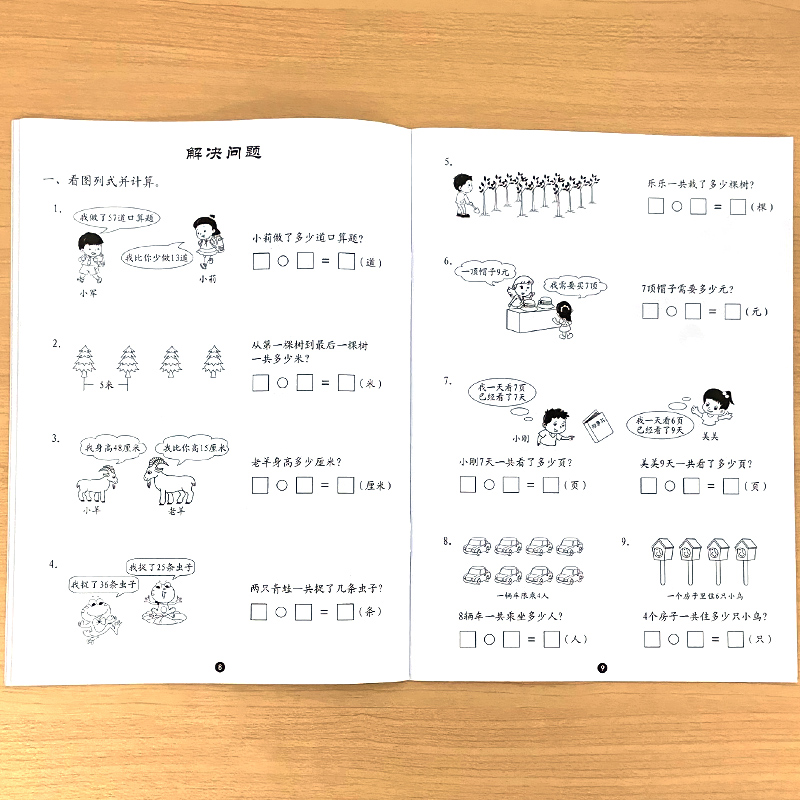 解决问题
一、看图列式并计算。
1.
我做了57道口算题
我比你少做13道
小军
小莉
小莉做了多少道口算题?
□○□=□(道)
2.
5米
从第一棵树到最后一棵树
一共多少米?
□○□=□(米)
3.
我身高48厘米
我比你高15厘米
小羊
老羊
老羊身高多少厘米?
□○□=□(厘米)
4.
我捉了25条虫子
我捉了36条虫子
两只青蛙一共捉了几条虫子?
□○□=□(条)
8
5.
乐乐一共栽了多少棵树?
□○□=□(棵)
6.
一顶帽子9元
我需要买7顶
7顶帽子需要多少元?
□○□=□(元)
7.
我一天看7页
已经看了7天
小刚
小刚7天一共看了多少页?
□○□=□(页)
我一天看6页
已经看了9天
美美
美美9天一共看了多少页?
□○□=□(页)
8.
一辆车限乘4人
8辆车一共乘坐多少人?
□○□=□(人)
9.
一个房子里住6只小鸟
4个房子一共住多少只小鸟?
□○□=□(只)
9